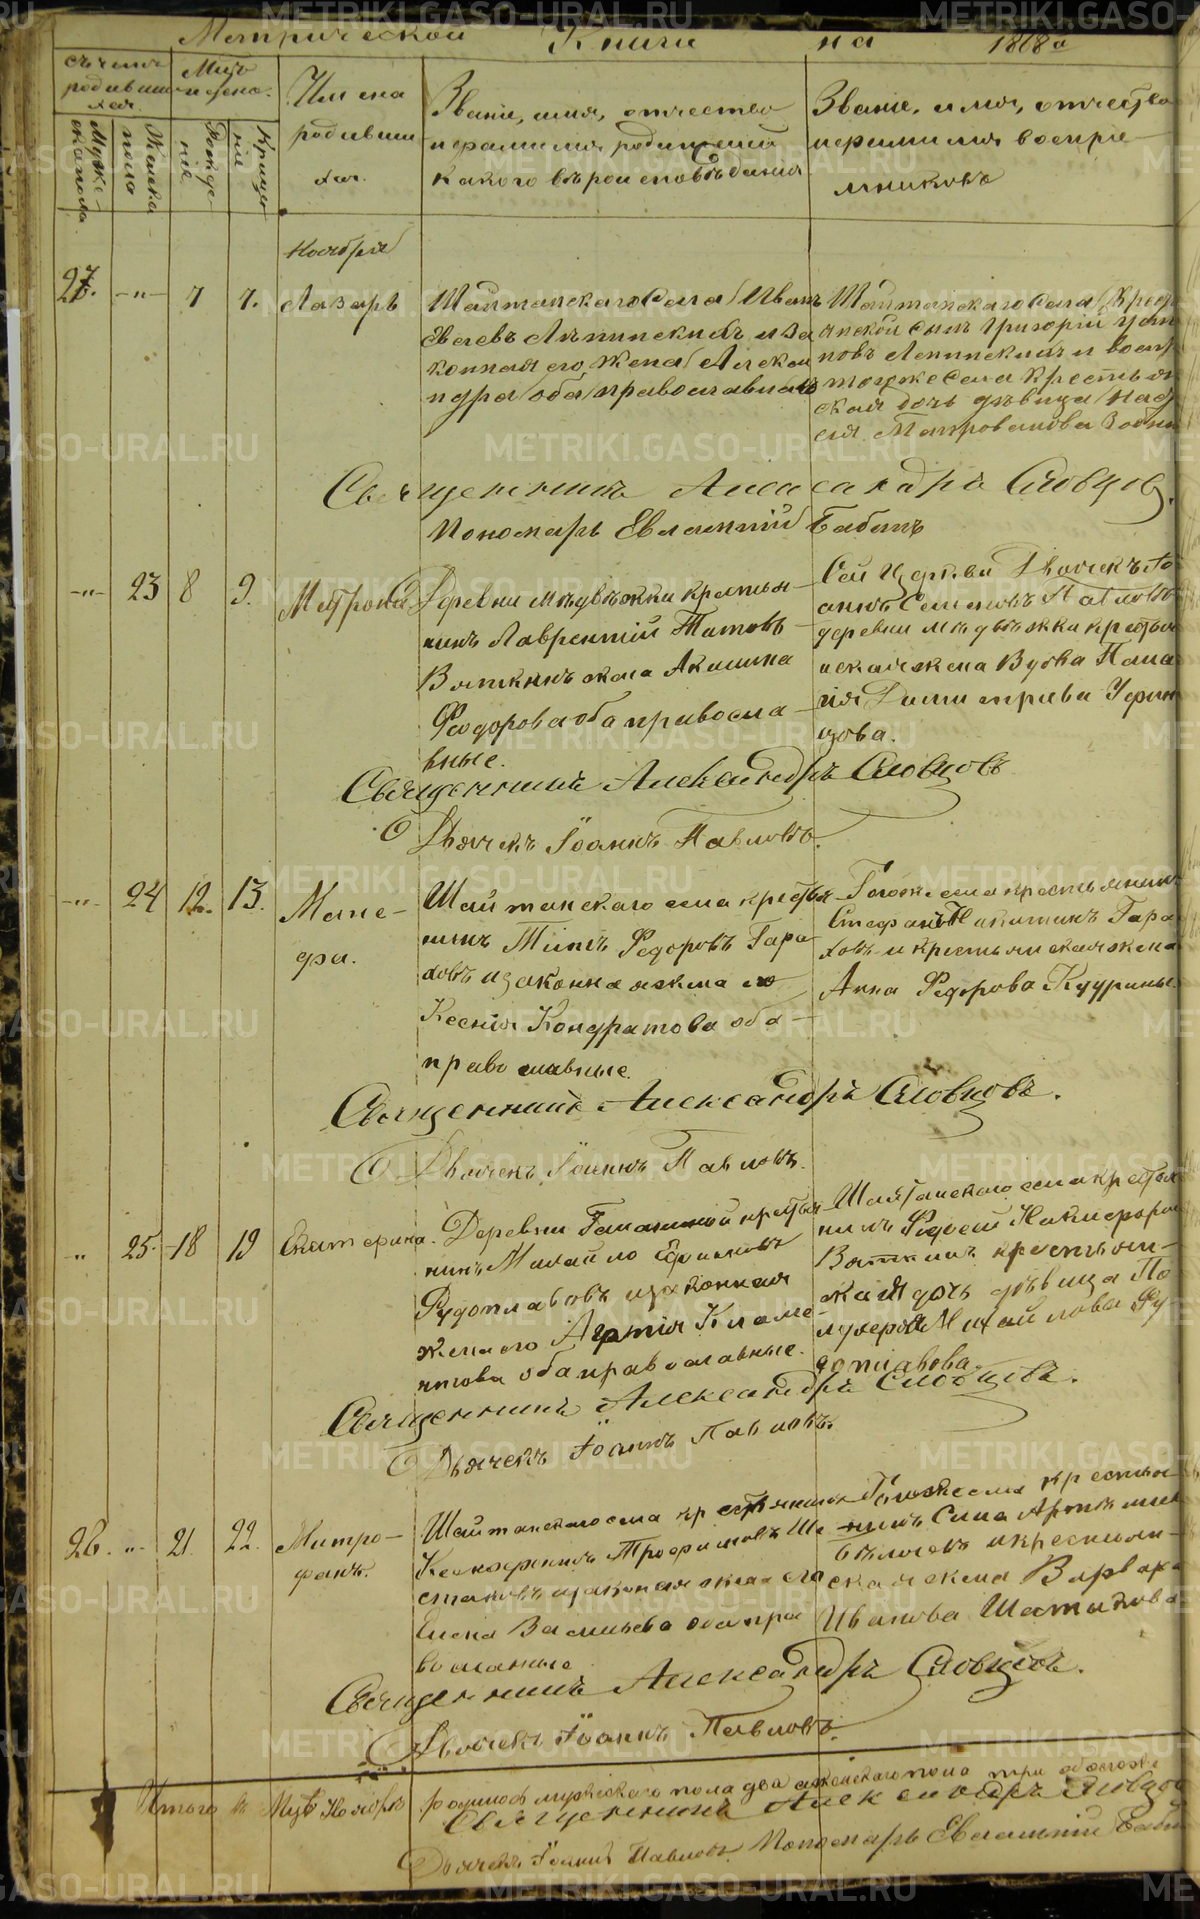 Метрической Книги на 1868 го
Съ чет
родивших
ся.
Мужескаго пола
Женска пола
Мць
и день.
Рожденія
Крещенія
Имена
родивших
ся.
Званіе, имя, отчество
и фамилия родителей
какого вѣроисповѣданія
Званіе, имя, отчество
и фамилия воспрі—
мниковъ
Ноября
27. —"— 7 7. Лазарь
Шайтанскаго Села Иванъ
Евсеевъ Ляпинскихъ и за
конная его жена Алексан
ндра оба православные
Шайтанскаго Села Крес
янской сынъ Григорій
новъ Ляпинскихъ и
тогоже Села Крестьян
ская дочь дѣвица Над
Священникъ Александръ Словцов.
Пономарь Евлампій Бабинъ
—"— 23 8 9. Матрона
Деревни Медвѣжки крестья—
нинъ Лаврентій Титовъ
Вяткинъ жена Акилина
Федорова оба правосла—
вные.
Сей Церкви Дьячекъ Іо
аннъ Семеновъ Павловъ
деревни Медвѣжки крестья
нская жена Вдова Пела
гия Димитриева Уфин
цова.
Священникъ Александръ Словцовъ
Дьячекъ Іоаннъ Павловъ.
—"— 24 12. 13. Мане—
фа.
Шайтанскаго села крестья—
нинъ Титъ Федоровъ Гара—
ховъ и законная жена его
Ксенія Кондратова оба—
православные.
Тогоже села крестьянинъ
Стефанъ Никитинъ Гара
ховъ и крестьянская жена
Анна Федорова Кудрины
Священникъ Александръ Словцовъ.
Дьячекъ Іоаннъ Павловъ.
" 25. 18 19 Екатерина.
Деревни Галаниной крестья
нинъ Михайло Ефимовъ
Рудоплавовъ и законная
жена его Агптія Климе—
нтова оба православные.
Шайтанскаго села крестья
нинъ Федосей Никифоров
Вяткинъ крестьян—
ская дочь дѣвица По
Михайлова Ру
доплавова.
Священникъ Александръ Словцовъ.
Дьячекъ Іоаннъ Павловъ.
26. " 21. 22. Митро—
фанъ.
Шайтанскаго села крестьянинъ
Ксенофонтъ Трофимовъ Ше
стаковъ и законная жена его
Елена Васильева оба пра
вославные
Тогоже села крестья
нинъ Сила Артемие
Бѣлоевъ и крестьян—
ская жена Варвара
Иванова Шестакова
Священникъ Александръ Словцовъ.
Дьячекъ Іоаннъ Павловъ.
Итого в Мцѣ Ноябрѣ родилось мужескаго пола два а женскаго пола три обоегоже
Священникъ Александръ Словцов
Дьячекъ Іоаннъ Павловъ. Пономарь Евлампій Баби
METRIKI.GASO-URAL.RU